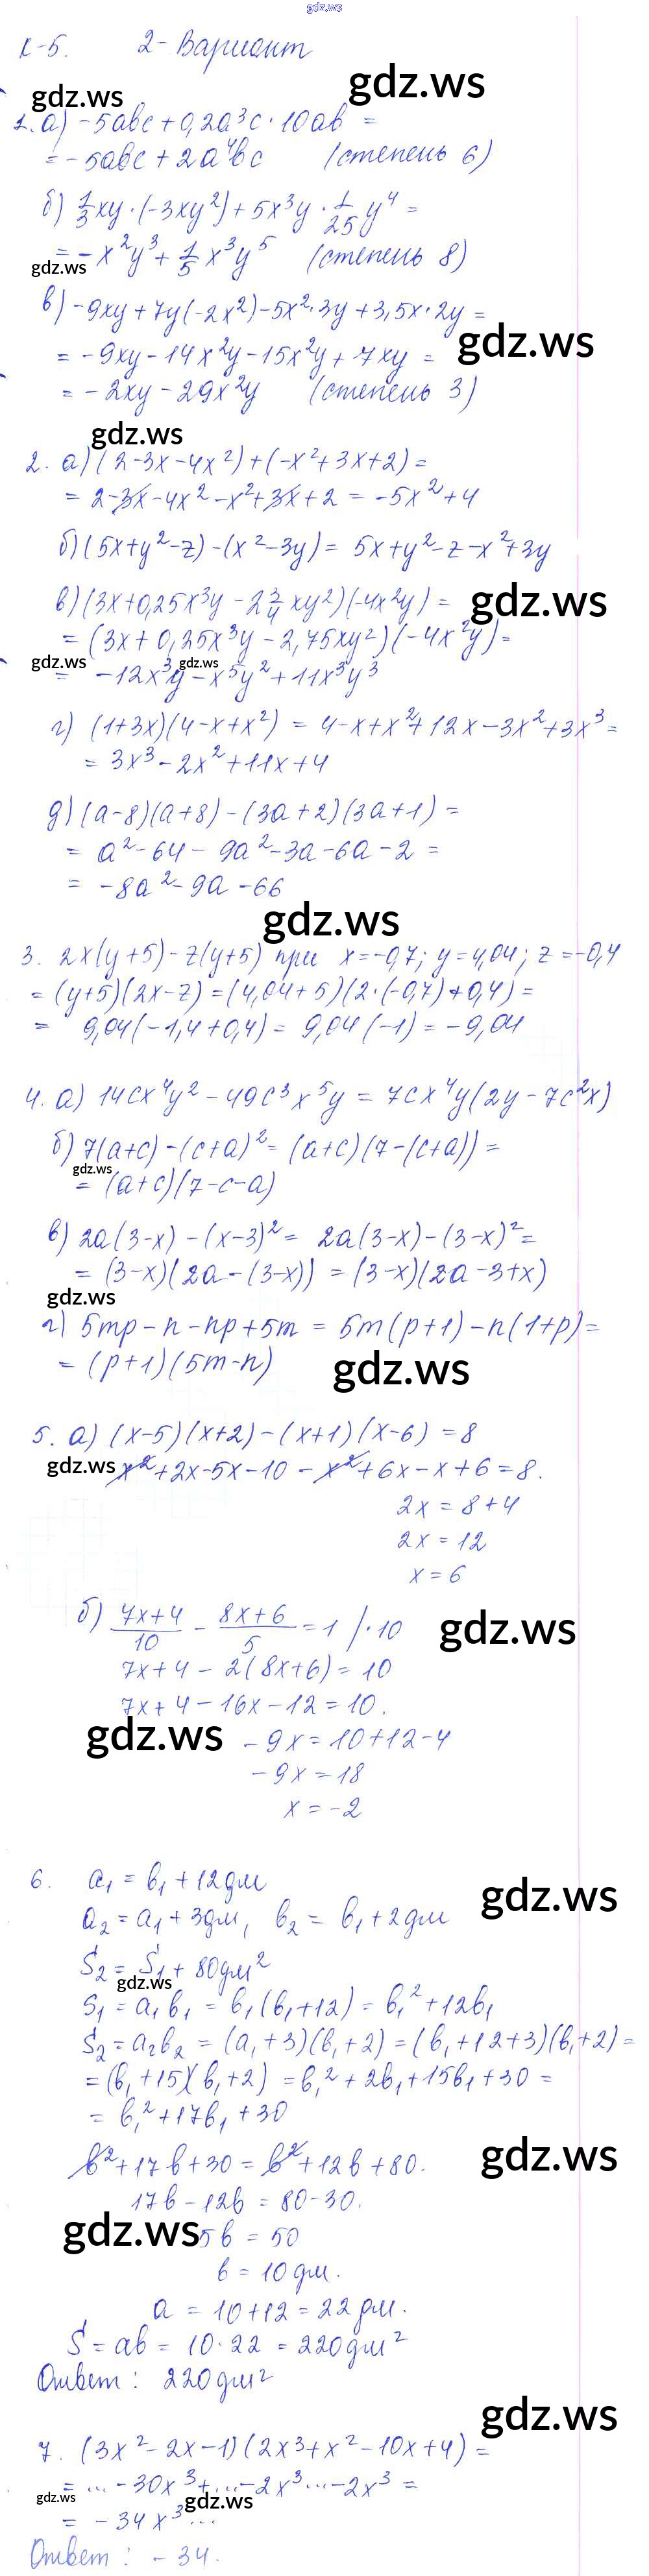 gdz.ws
К-5. 2-Вариант
gdz.ws gdz.ws
1. а) -5abc + 0,2a³c · 10ab =
= -5abc + 2a⁴bc (степень 6)
б) 1/3 xy · (-3xy²) + 5x³y · 1/25 y⁴ =
= -x²y³ + 1/5 x³y⁵ (степень 8)
gdz.ws
в) -9xy + 7y(-2x²) - 5x² · 3y + 3,5x · 2y =
gdz.ws
= -9xy - 14x²y - 15x²y + 7xy =
= -2xy - 29x²y (степень 3)
gdz.ws
2. а) (2-3x-4x²) + (-x²+3x+2) =
= 2-3x-4x²-x²+3x+2 = -5x²+4
б) (5x+y²-z) - (x²-3y) = 5x+y²-z-x²+3y
в) (3x+0,25x³y - 2 3/4 xy²)(-4x²y) =
gdz.ws
= (3x+0,25x³y - 2,75xy²)(-4x²y) =
gdz.ws gdz.ws
= -12x³y - x⁵y² + 11x³y³
г) (1+3x)(4-x+x²) = 4-x+x²+12x-3x²+3x³ =
= 3x³-2x²+11x+4
д) (a-8)(a+8) - (3a+2)(3a+1) =
= a²-64-9a²-3a-6a-2 =
= -8a²-9a-66
gdz.ws
3. 2x(y+5) - z(y+5) при x=-0,7; y=4,04; z=-0,4
= (y+5)(2x-z) = (4,04+5)(2·(-0,7)+0,4) =
= 9,04(-1,4+0,4) = 9,04(-1) = -9,04
4. а) 14cx⁴y² - 49c³x⁵y = 7cx⁴y(2y-7c²x)
б) 7(a+c) - (c+a)² = (a+c)(7-(c+a)) =
gdz.ws
= (a+c)(7-c-a)
в) 2a(3-x) - (x-3)² = 2a(3-x) - (3-x)² =
= (3-x)(2a-(3-x)) = (3-x)(2a-3+x)
gdz.ws
г) 5mp - n - np + 5m = 5m(p+1) - n(1+p) =
= (p+1)(5m-n)
gdz.ws
5. а) (x-5)(x+2) - (x+1)(x-6) = 8
gdz.ws
x²+2x-5x-10-x²+6x-x+6 = 8.
2x = 8+4
2x = 12
x = 6
б) (7x+4)/10 - (8x+6)/5 = 1 /·10
gdz.ws
7x+4 - 2(8x+6) = 10
7x+4-16x-12 = 10.
gdz.ws
-9x = 10+12-4
-9x = 18
x = -2
6. a₁ = b₁ + 12дм
gdz.ws
a₂ = a₁ + 3дм, b₂ = b₁ + 2дм
S₂ = S₁ + 80дм²
gdz.ws
S₁ = a₁b₁ = b₁(b₁+12) = b₁²+12b₁
S₂ = a₂b₂ = (a₁+3)(b₁+2) = (b₁+12+3)(b₁+2) =
= (b₁+15)(b₁+2) = b₁²+2b₁+15b₁+30 =
= b₁²+17b₁+30
gdz.ws
b²+17b+30 = b²+12b+80.
17b-12b = 80-30.
gdz.ws
5b = 50
b = 10дм.
a = 10+12 = 22дм.
S = ab = 10·22 = 220дм²
Ответ: 220дм²
gdz.ws
7. (3x²-2x-1)(2x³+x²-10x+4) =
= ... -30x³+...-2x³...-2x³ =
gdz.ws gdz.ws
= -34x³...
Ответ: -34.